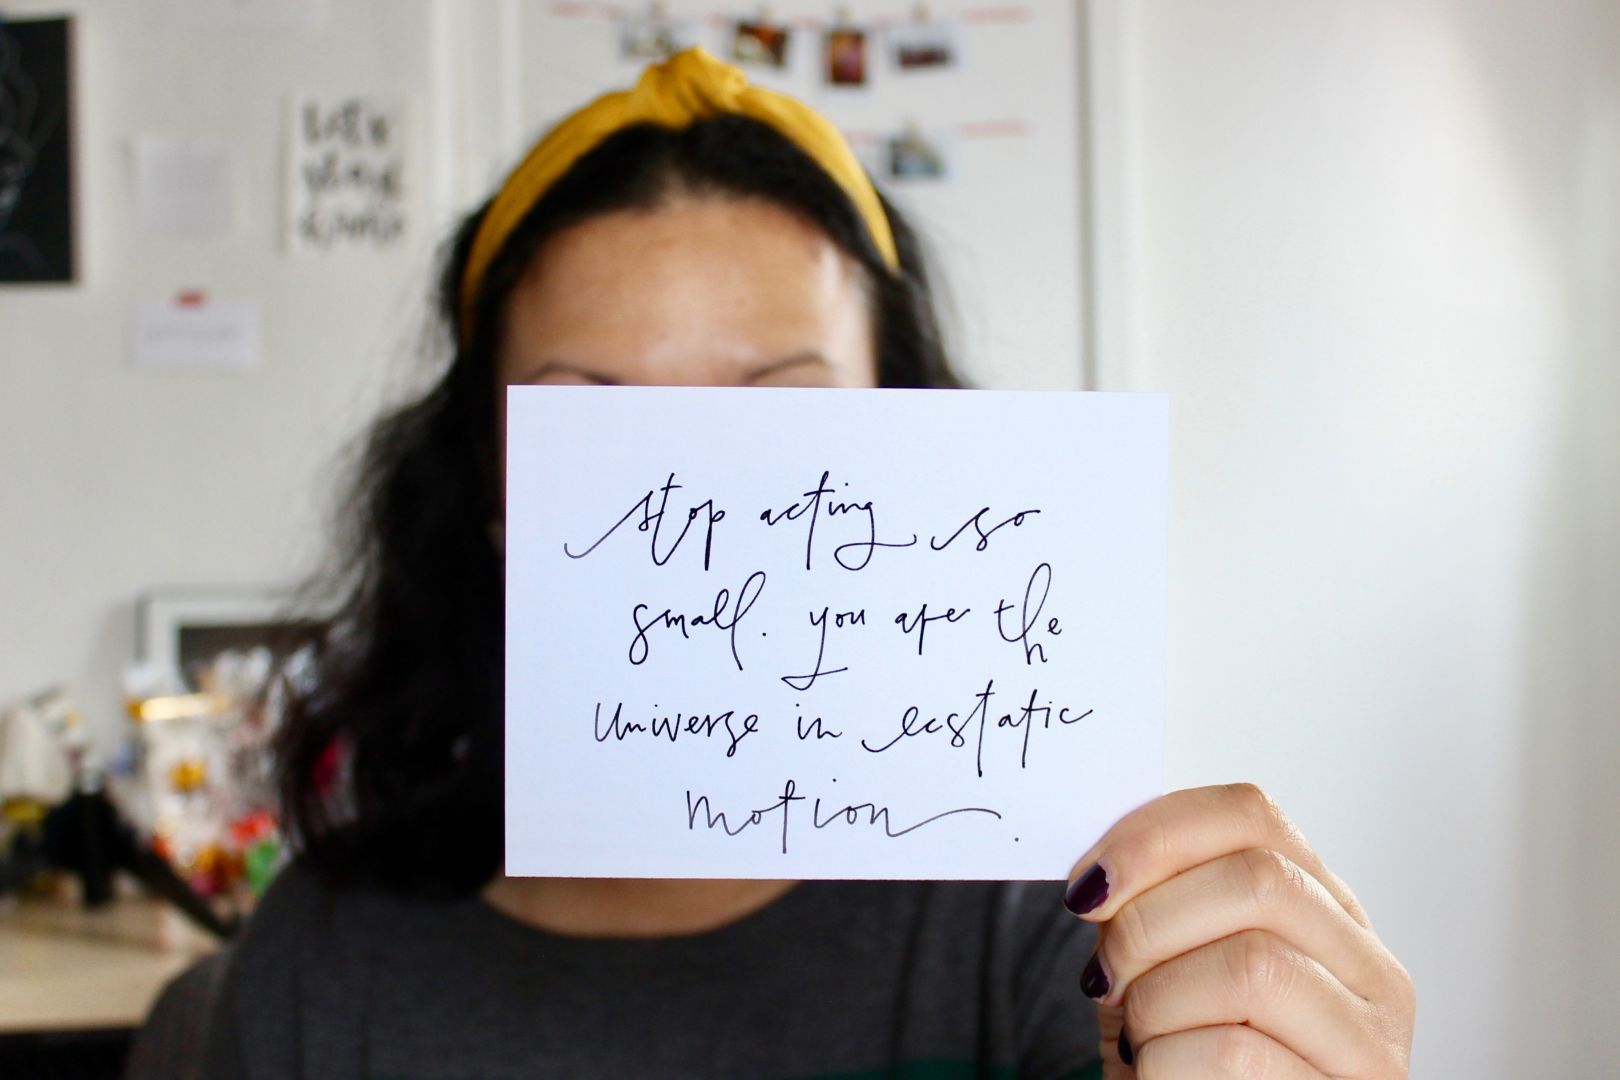 stop acting so
small. you are the
Universe in ecstatic
motion.